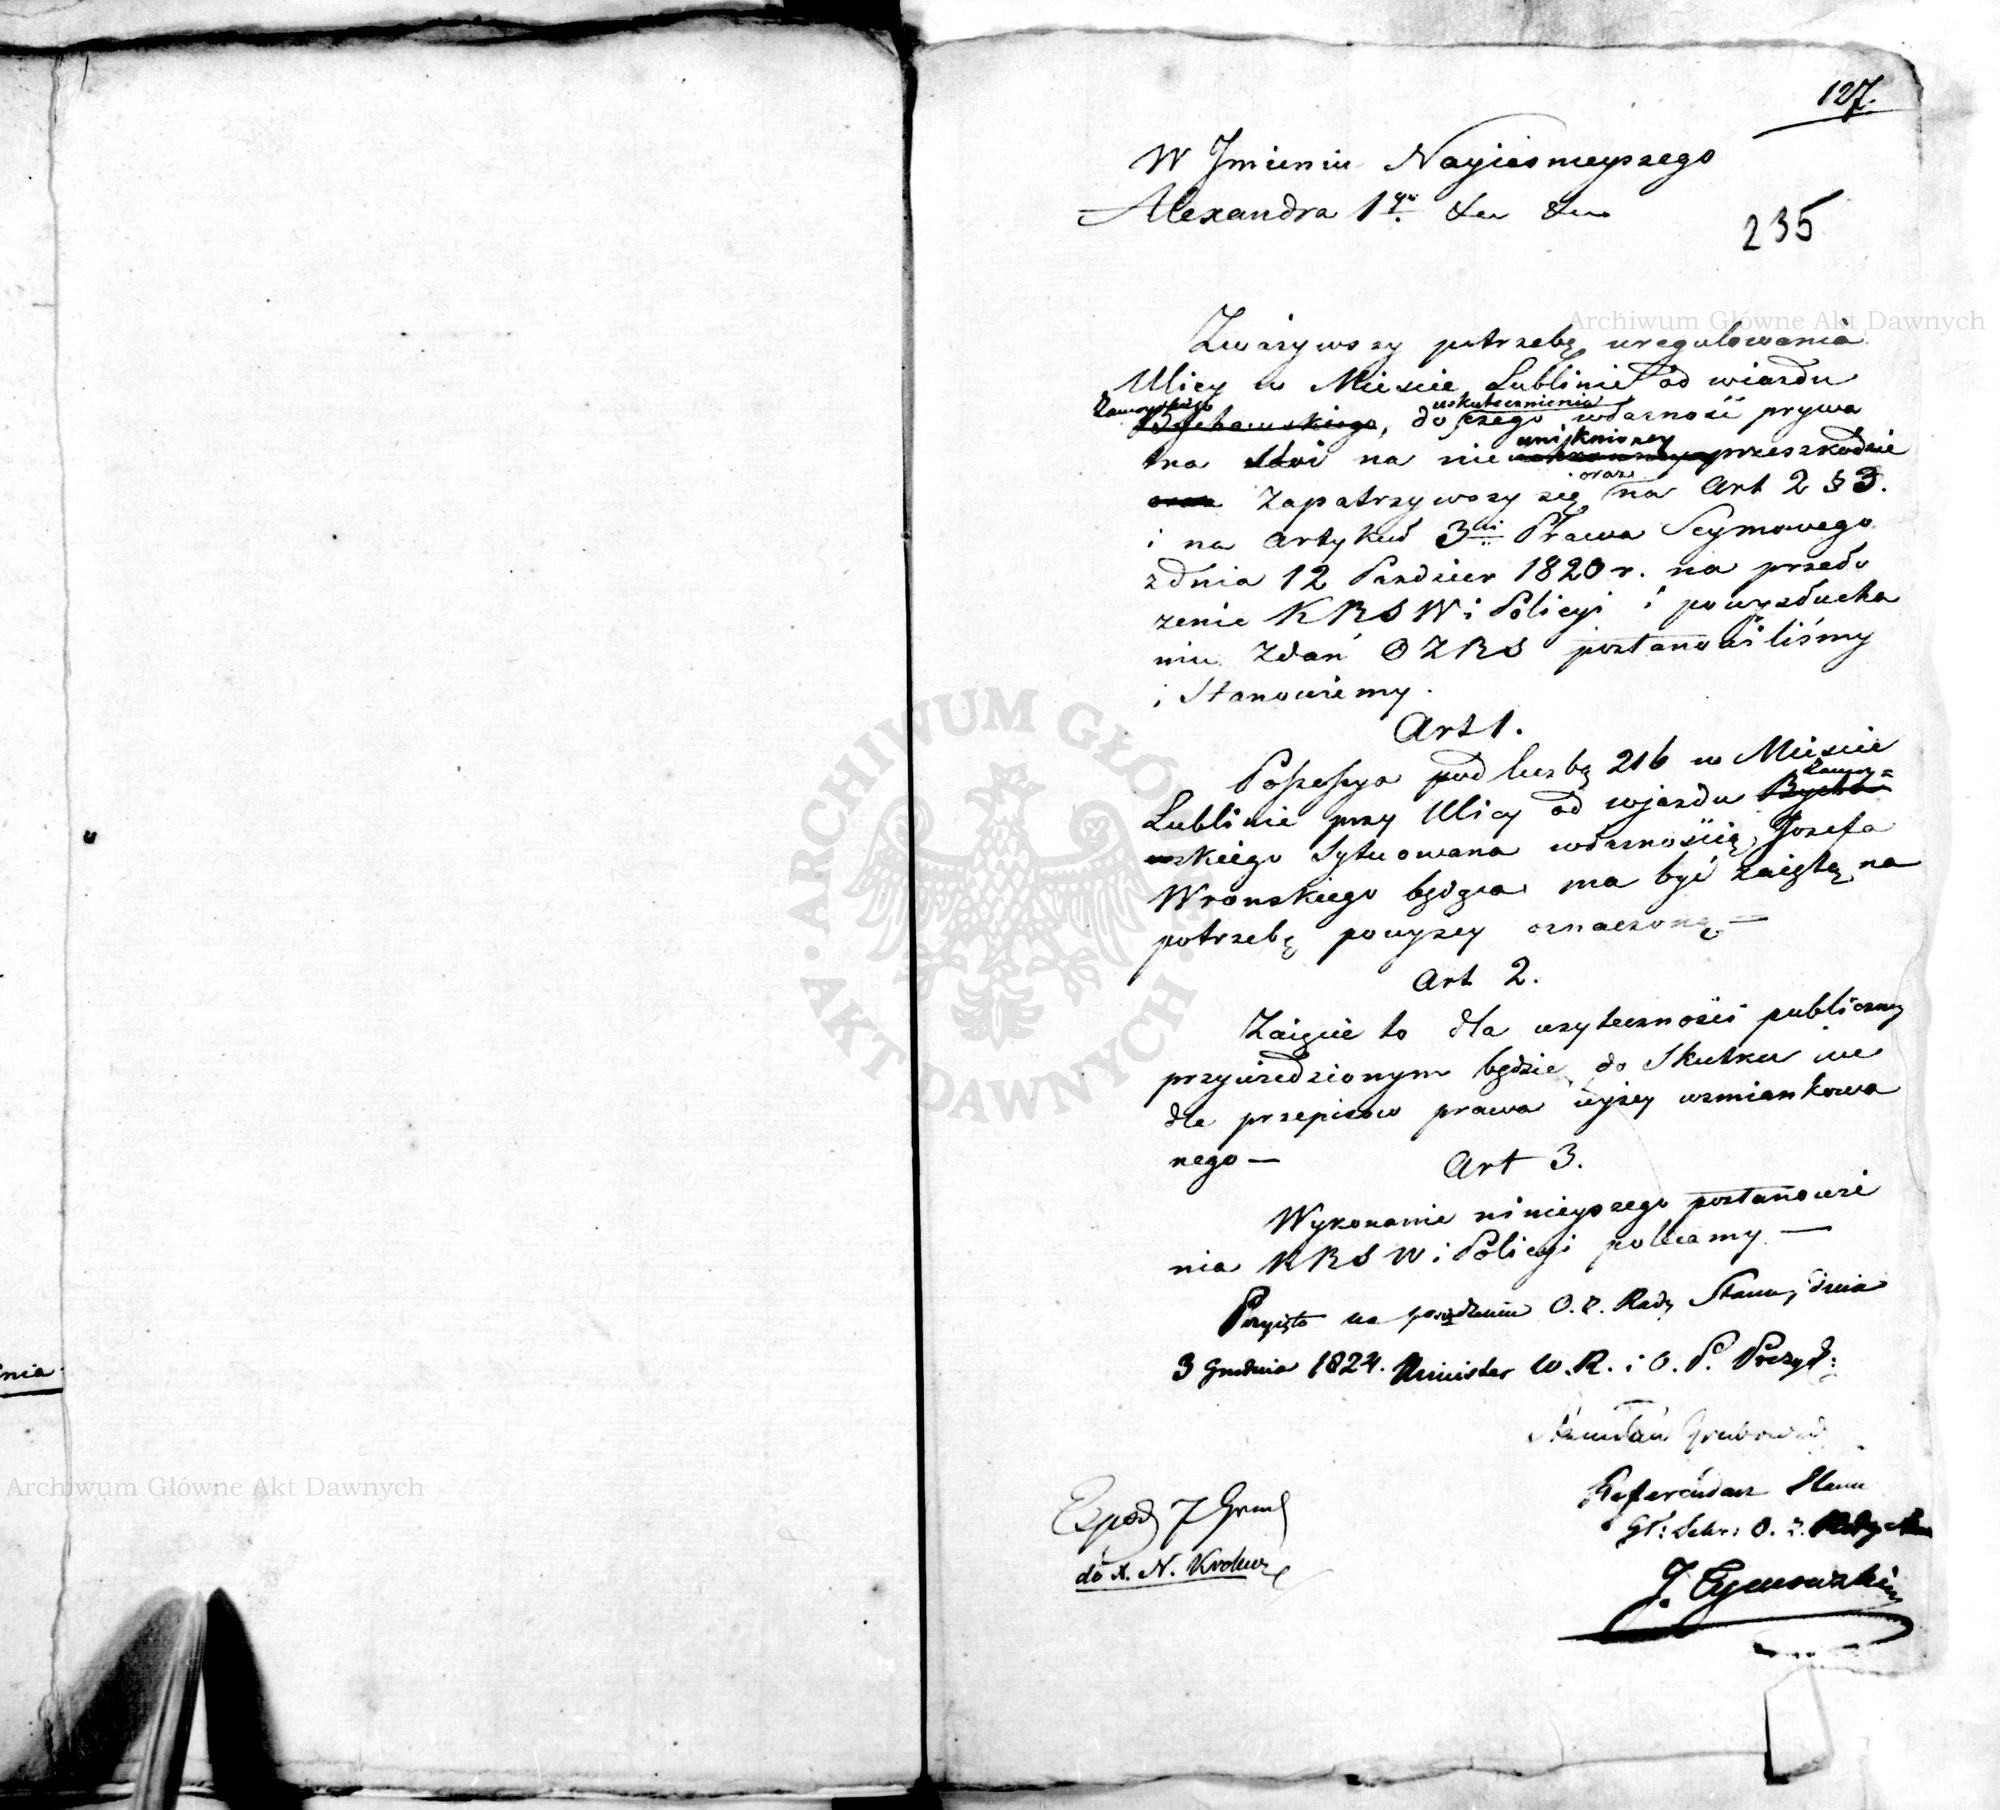 127.
W Jmieniu Nayiasnieyszego
Alexandra 1go &ca &ca
235
Zważywszy potrzebę uregulowania
Ulicy w Mieście Lublinie od wiazdu
Zamoyskiego
Bychawskiego, do czego uskutecznienia własność prywa
tna stoi na nie uniknioney przeszkodzie
oraz Zapatrzywszy się oraz na Art 2 § 3.
i na artykuł 3ci Prawa Seymowego
z dnia 12 Pazdzier 1820 r. na przeło
żenie KRSW i Policyi i powysłucha
niu Zdań OZRS postanowiliśmy
i Stanowiemy.
Art 1.
Possessya pod liczbą 216 w Mieście
Lublinie przy Ulicy od wjazdu Bycha Zamoy=
wskiego Sytuowana własnością Jozefa
Wronskiego będąca ma być zaiętą na
potrzebę powyżey oznaczoną —
Art 2.
Zaięcie to dla użyteczności publiczney
przywiedzionym będzie do Skutku we
dle przepisow prawa wyżey wzmiankowa
nego —
Art 3.
Wykonanie ninieyszego postanowie
nia KRSW i Policyi polecamy —
Przyięto na posiedzeniu O. Z. Rady Stanu, dnia
3 Grudnia 1824. Minister W. R. i O. P. Prezyd:
Stanisław Grabowski
Referendarz Stanu
Gł: Sekr: O. Z. Rady Stanu
Exped 7 Grud
do X. N. Krolew
nia.
Archiwum Główne Akt Dawnych
Archiwum Główne Akt Dawnych
ARCHIWUM GŁÓWNE AKT DAWNYCH